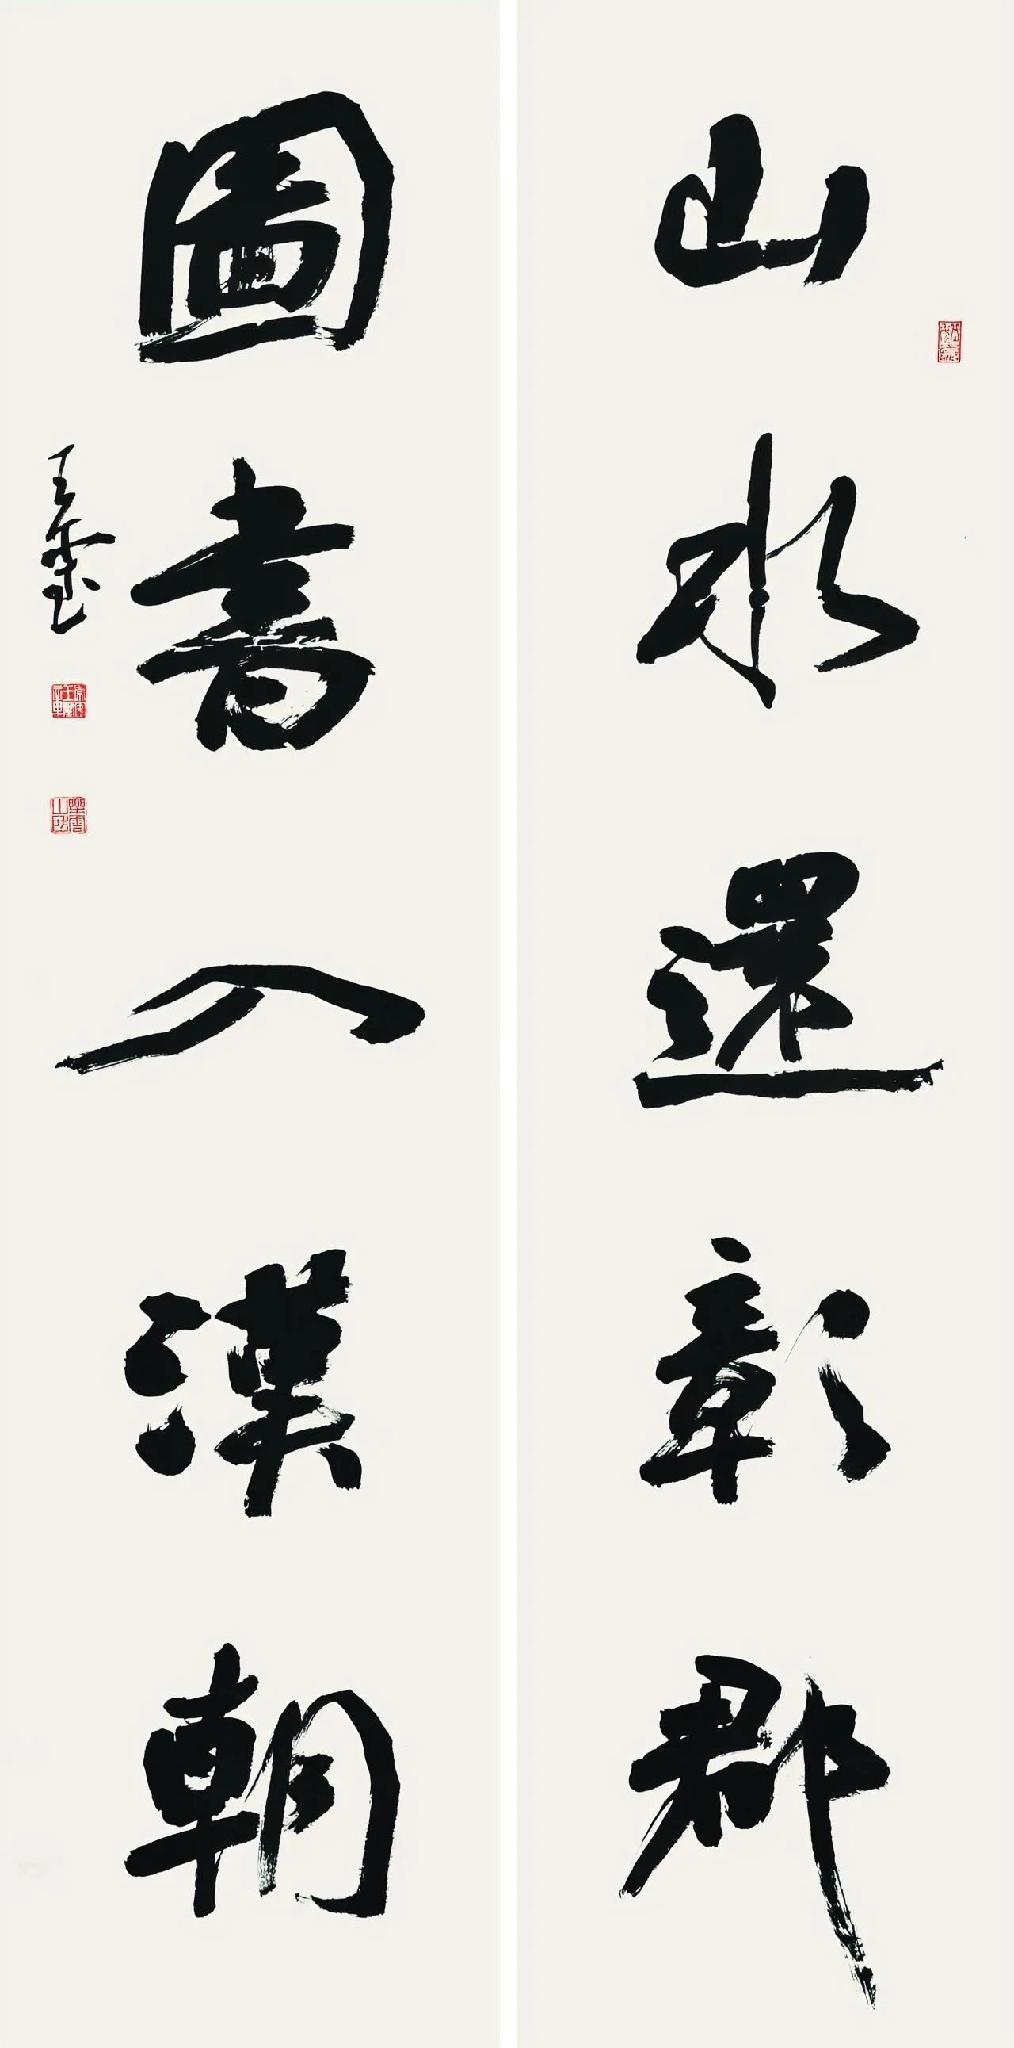 山水還彰郡
圖書入漢朝